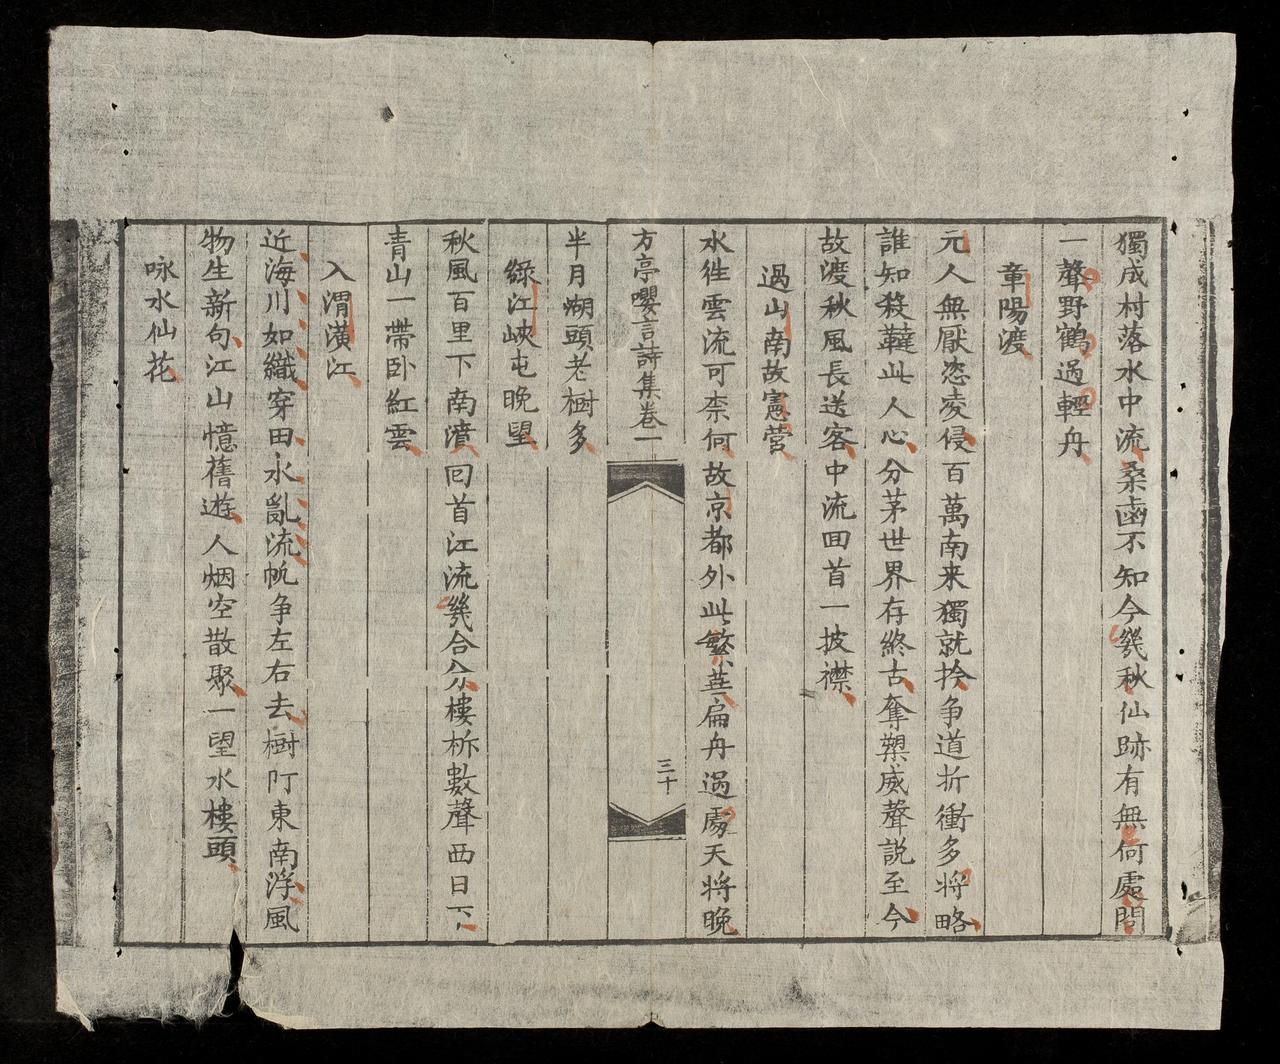 獨成村落水中流桑鹵不知今幾秋仙跡有無何處問
一聲野鶴過輕舟
章陽渡
元人無厭恣凌侵百萬南来獨就擒争道折衝多將略
誰知殺韃此人心分茅世界存終古奪槊威聲説至今
故渡秋風長送客中流回首一披襟
過山南故憲营
水徃雲流可柰何故京都外此繁華扁舟過處天將晚
半月𤄷頭老樹多
方亭嚶言詩集卷一
三十
綠江峽屯晚望
秋風百里下南濆回首江流幾合分樓柝數聲西日下
青山一帶卧紅雲
入渭潢江
近海川如織穿田水亂流帆争左右去樹阿東南浮風
物生新句江山憶舊遊人烟空散聚一望水樓頭
咏水仙花